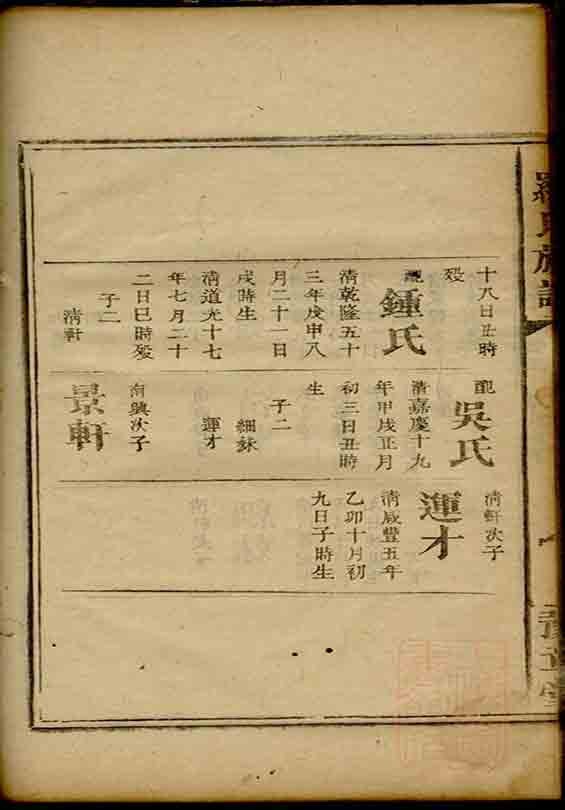 羅氏族譜
十八日丑時
殁
配
鍾氏
清乾隆五十
三年戊申八
月二十一日
戌時生
清道光十七
年七月二十
二日巳時殁
子二
清軒
配
吳氏
清嘉慶十九
年甲戌正月
初三日丑時
生
子二
細妹
運才
南興次子
景軒
清軒次子
運才
清咸豐五年
乙卯十月初
九日子時生